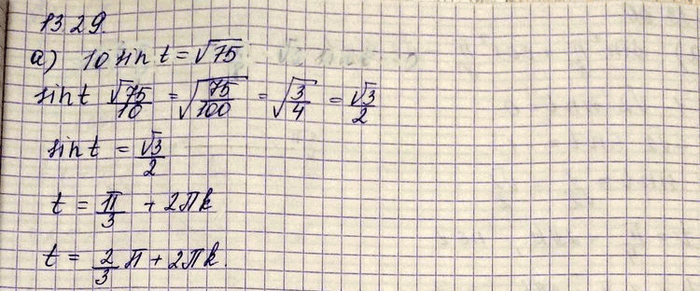 13.29.
а) 10 sin t = √75
sin t √75/10 = √(75/100) = √(3/4) = √3/2
sin t = √3/2
t = π/3 + 2πk
t = 2/3 π + 2πk.